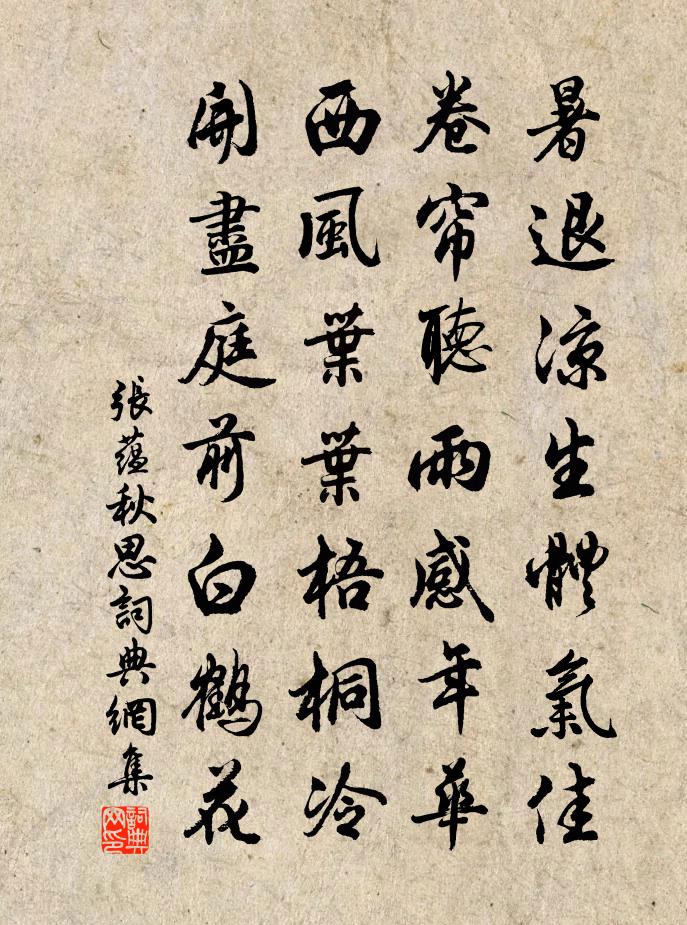 暑退涼生體氣佳
卷帘聽雨感年華
西風葉葉梧桐冷
開盡庭前白鶴花
張蘊秋思詞典網集
詞典网印